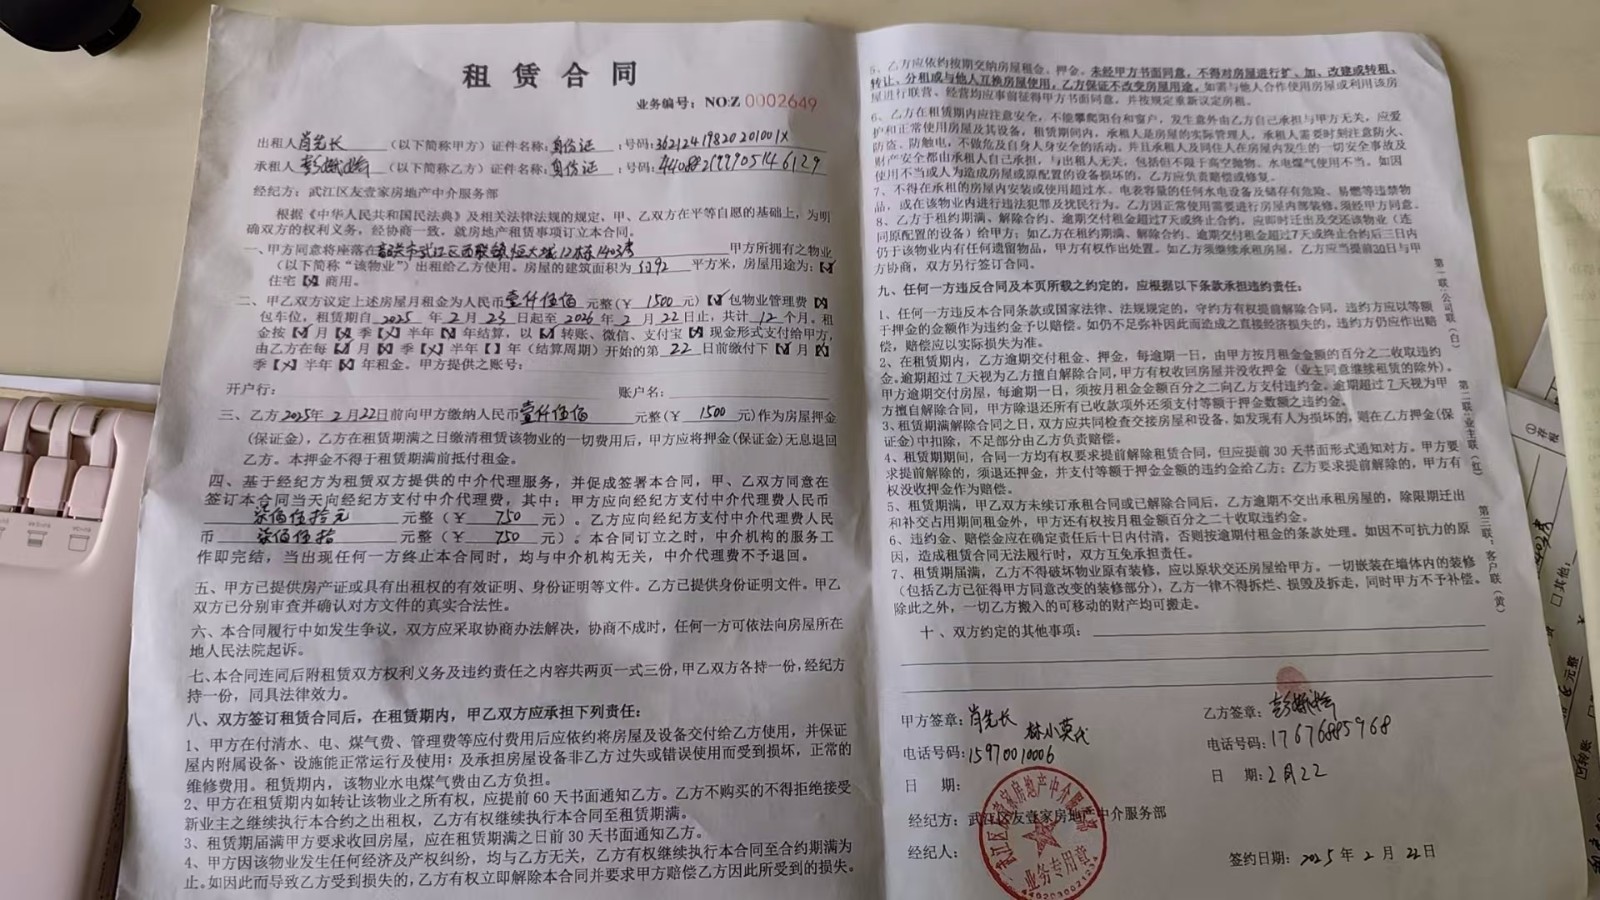 租赁合同
业务编号：NO:Z 0002649
出租人肖先长（以下简称甲方）证件名称：身份证：号码：36212419820201001X
承租人（以下简称乙方）证件名称：身份证：号码：440882199905146129
经纪方：武江区友壹家房地产中介服务部
根据《中华人民共和国民法典》及相关法律法规的规定，甲、乙双方在平等自愿的基础上，为明
确双方的权利义务，经协商一致。就房地产租赁事项订立本合同。
一、甲方同意将座落在韶关市武江区西联镇恒大城12栋1403房甲方所拥有之物业
（以下简称“该物业”）出租给乙方使用。房屋的建筑面积为约92平方米，房屋用途为：【✓】
住宅【×】商用。
二、甲乙双方议定上述房屋月租金为人民币壹仟伍佰元整（¥1500元）【✓】包物业管理费【×】
包车位，租赁期自2025年2月23日起至2026年2月22日止，共计12个月。租
金按【✓】月【×】季【×】半年【×】年结算，以【✓】转账、微信、支付宝【×】现金形式支付给甲方，
由乙方在每【✓】月【×】季【×】半年【】年（结算周期）开始的第22日前缴付下【✓】月【×】
季【×】半年【×】年租金。甲方提供之账号：
开户行：账户名：
三、乙方2025年2月22日前向甲方缴纳人民币壹仟伍佰元整（¥1500元）作为房屋押金
（保证金），乙方在租赁期满之日缴清租赁该物业的一切费用后，甲方应将押金（保证金）无息退回
乙方。本押金不得于租赁期满前抵付租金。
四、基于经纪方为租赁双方提供的中介代理服务，并促成签署本合同，甲、乙双方同意在
签订本合同当天向经纪方支付中介代理费，其中：甲方应向经纪方支付中介代理费人民币
柒佰伍拾元元整（¥750元）。乙方应向经纪方支付中介代理费人民
币柒佰伍拾元整（¥750元）。本合同订立之时，中介机构的服务工
作即完结，当出现任何一方终止本合同时，均与中介机构无关，中介代理费不予退回。
五、甲方已提供房产证或具有出租权的有效证明、身份证明等文件。乙方已提供身份证明文件。甲乙
双方已分别审查并确认对方文件的真实合法性。
六、本合同履行中如发生争议，双方应采取协商办法解决，协商不成时，任何一方可依法向房屋所在
地人民法院起诉。
七、本合同连同后附租赁双方权利义务及违约责任之内容共两页一式三份，甲乙双方各持一份，经纪方
持一份，同具法律效力。
八、双方签订租赁合同后，在租赁期内，甲乙双方应承担下列责任：
1、甲方在付清水、电、煤气费、管理费等应付费用后应依约将房屋及设备交付给乙方使用，并保证
屋内附属设备、设施能正常运行及使用；及承担房屋设备非乙方过失或错误使用而受到损坏，正常的
维修费用。租赁期内，该物业水电煤气费由乙方负担。
2、甲方在租赁期内如转让该物业之所有权，应提前60天书面通知乙方。乙方不购买的不得拒绝接受
新业主之继续执行本合约之出租权，乙方有权继续执行本合同至租赁期满。
3、租赁期届满甲方要求收回房屋，应在租赁期满之日前30天书面通知乙方。
4、甲方因该物业发生任何经济及产权纠纷，均与乙方无关，乙方有权继续执行本合同至合约期满为
止。如因此而导致乙方受到损失的，乙方有权立即解除本合同并要求甲方赔偿乙方因此所受到的损失。
5、乙方应依约按期交纳房屋租金、押金。未经甲方书面同意，不得对房屋进行扩、加、改建或转租，
转让、分租或与他人互换房屋使用，乙方保证不改变房屋用途，如需与他人合作使用房屋或利用该房
屋进行联营、经营均应事前征得甲方书面同意，并按规定重新议定房租。
6、乙方在租赁期内应注意安全，不能攀爬阳台和窗户，发生意外由乙方自己承担与甲方无关，应爱
护和正常使用房屋及其设备，租赁期间内，承租人是房屋的实际管理人，承租人需要时刻注意防火、
防盗、防触电，不做危及自身人身安全的活动，并且承租人及同住人在房屋内发生的一切安全事故及
财产安全都由承租人自己承担，与出租人无关，包括但不限于高空抛物、水电煤气使用不当。如因
使用不当或人为造成房屋或原配置的设备损坏的，乙方应负责赔偿或修复。
7、不得在承租的房屋内安装或使用超过水、电表容量的任何水电设备及储存有危险、易燃等违禁物
品，或在该物业内进行违法犯罪及扰民行为。乙方因正常使用需要进行房屋内部装修，须经甲方同意。
8、乙方于租约期满、解除合约、逾期交付租金超过7天或终止合约，应即时迁出及交还该物业（连
同原配置的设备）给甲方；如乙方在租约期满、解除合约、逾期交付租金超过7天或终止合约后三日内
仍于该物业内有任何遗留物品，甲方有权作出处置。如乙方须继续承租房屋，乙方应当提前30日与甲
方协商，双方另行签订合同。
九、任何一方违反合同及本页所载之约定的，应根据以下条款承担违约责任：
1、任何一方违反本合同条款或国家法律、法规规定的，守约方有权提前解除合同，违约方应以等额
于押金的金额作为违约金予以赔偿。如仍不足弥补因此而造成之直接经济损失的，违约方仍应作出赔
偿，赔偿应以实际损失为准。
2、在租赁期内，乙方逾期交付租金、押金，每逾期一日，由甲方按月租金金额的百分之二收取违约
金。逾期超过7天视为乙方擅自解除合同，甲方有权收回房屋并没收押金（业主同意继续租赁的除外）。
甲方逾期交付房屋，每逾期一日，须按月租金金额百分之二向乙方支付违约金。逾期超过7天视为甲
方擅自解除合同，甲方除退还所有已收款项外还须支付等额于押金数额之违约金。
3、租赁期满解除合同之日，双方应共同检查交接房屋和设备，如发现有人为损坏的，则在乙方押金（保
证金）中扣除，不足部分由乙方负责赔偿。
4、租赁期期间，合同一方均有权要求提前解除租赁合同，但应提前30天书面形式通知对方。甲方要
求提前解除的，须退还押金，并支付等额于押金金额的违约金给乙方；乙方要求提前解除的，甲方有
权没收押金作为赔偿。
5、租赁期满，甲乙双方未续订承租合同或已解除合同后，乙方逾期不交出承租房屋的，除限期迁出
和补交占用期间租金外，甲方还有权按月租金额百分之二十收取违约金。
6、违约金、赔偿金应在确定责任后十日内付清，否则按逾期付租金的条款处理。如因不可抗力的原
因，造成租赁合同无法履行时，双方互免承担责任。
7、租赁期届满，乙方不得破坏物业原有装修，应以原状交还房屋给甲方。一切嵌装在墙体内的装修
（包括乙方已征得甲方同意改变的装修部分），乙方一律不得拆烂、损毁及拆走，同时甲方不予补偿。
除此之外，一切乙方搬入的可移动的财产均可搬走。
十、双方约定的其他事项：
甲方签章：肖先长 林小英代
电话号码：15970010006
日期：
乙方签章：
电话号码：17676885968
日期：2月22
经纪方：武江区友壹家房地产中介服务部
经纪人：
签约日期：2025年2月22日
武江区友壹家房地产中介服务部
业务专用章
第一联：公司联（白）
第二联：业主联（红）
第三联：客户联（黄）
①存根
□其他：
元整
☑转账